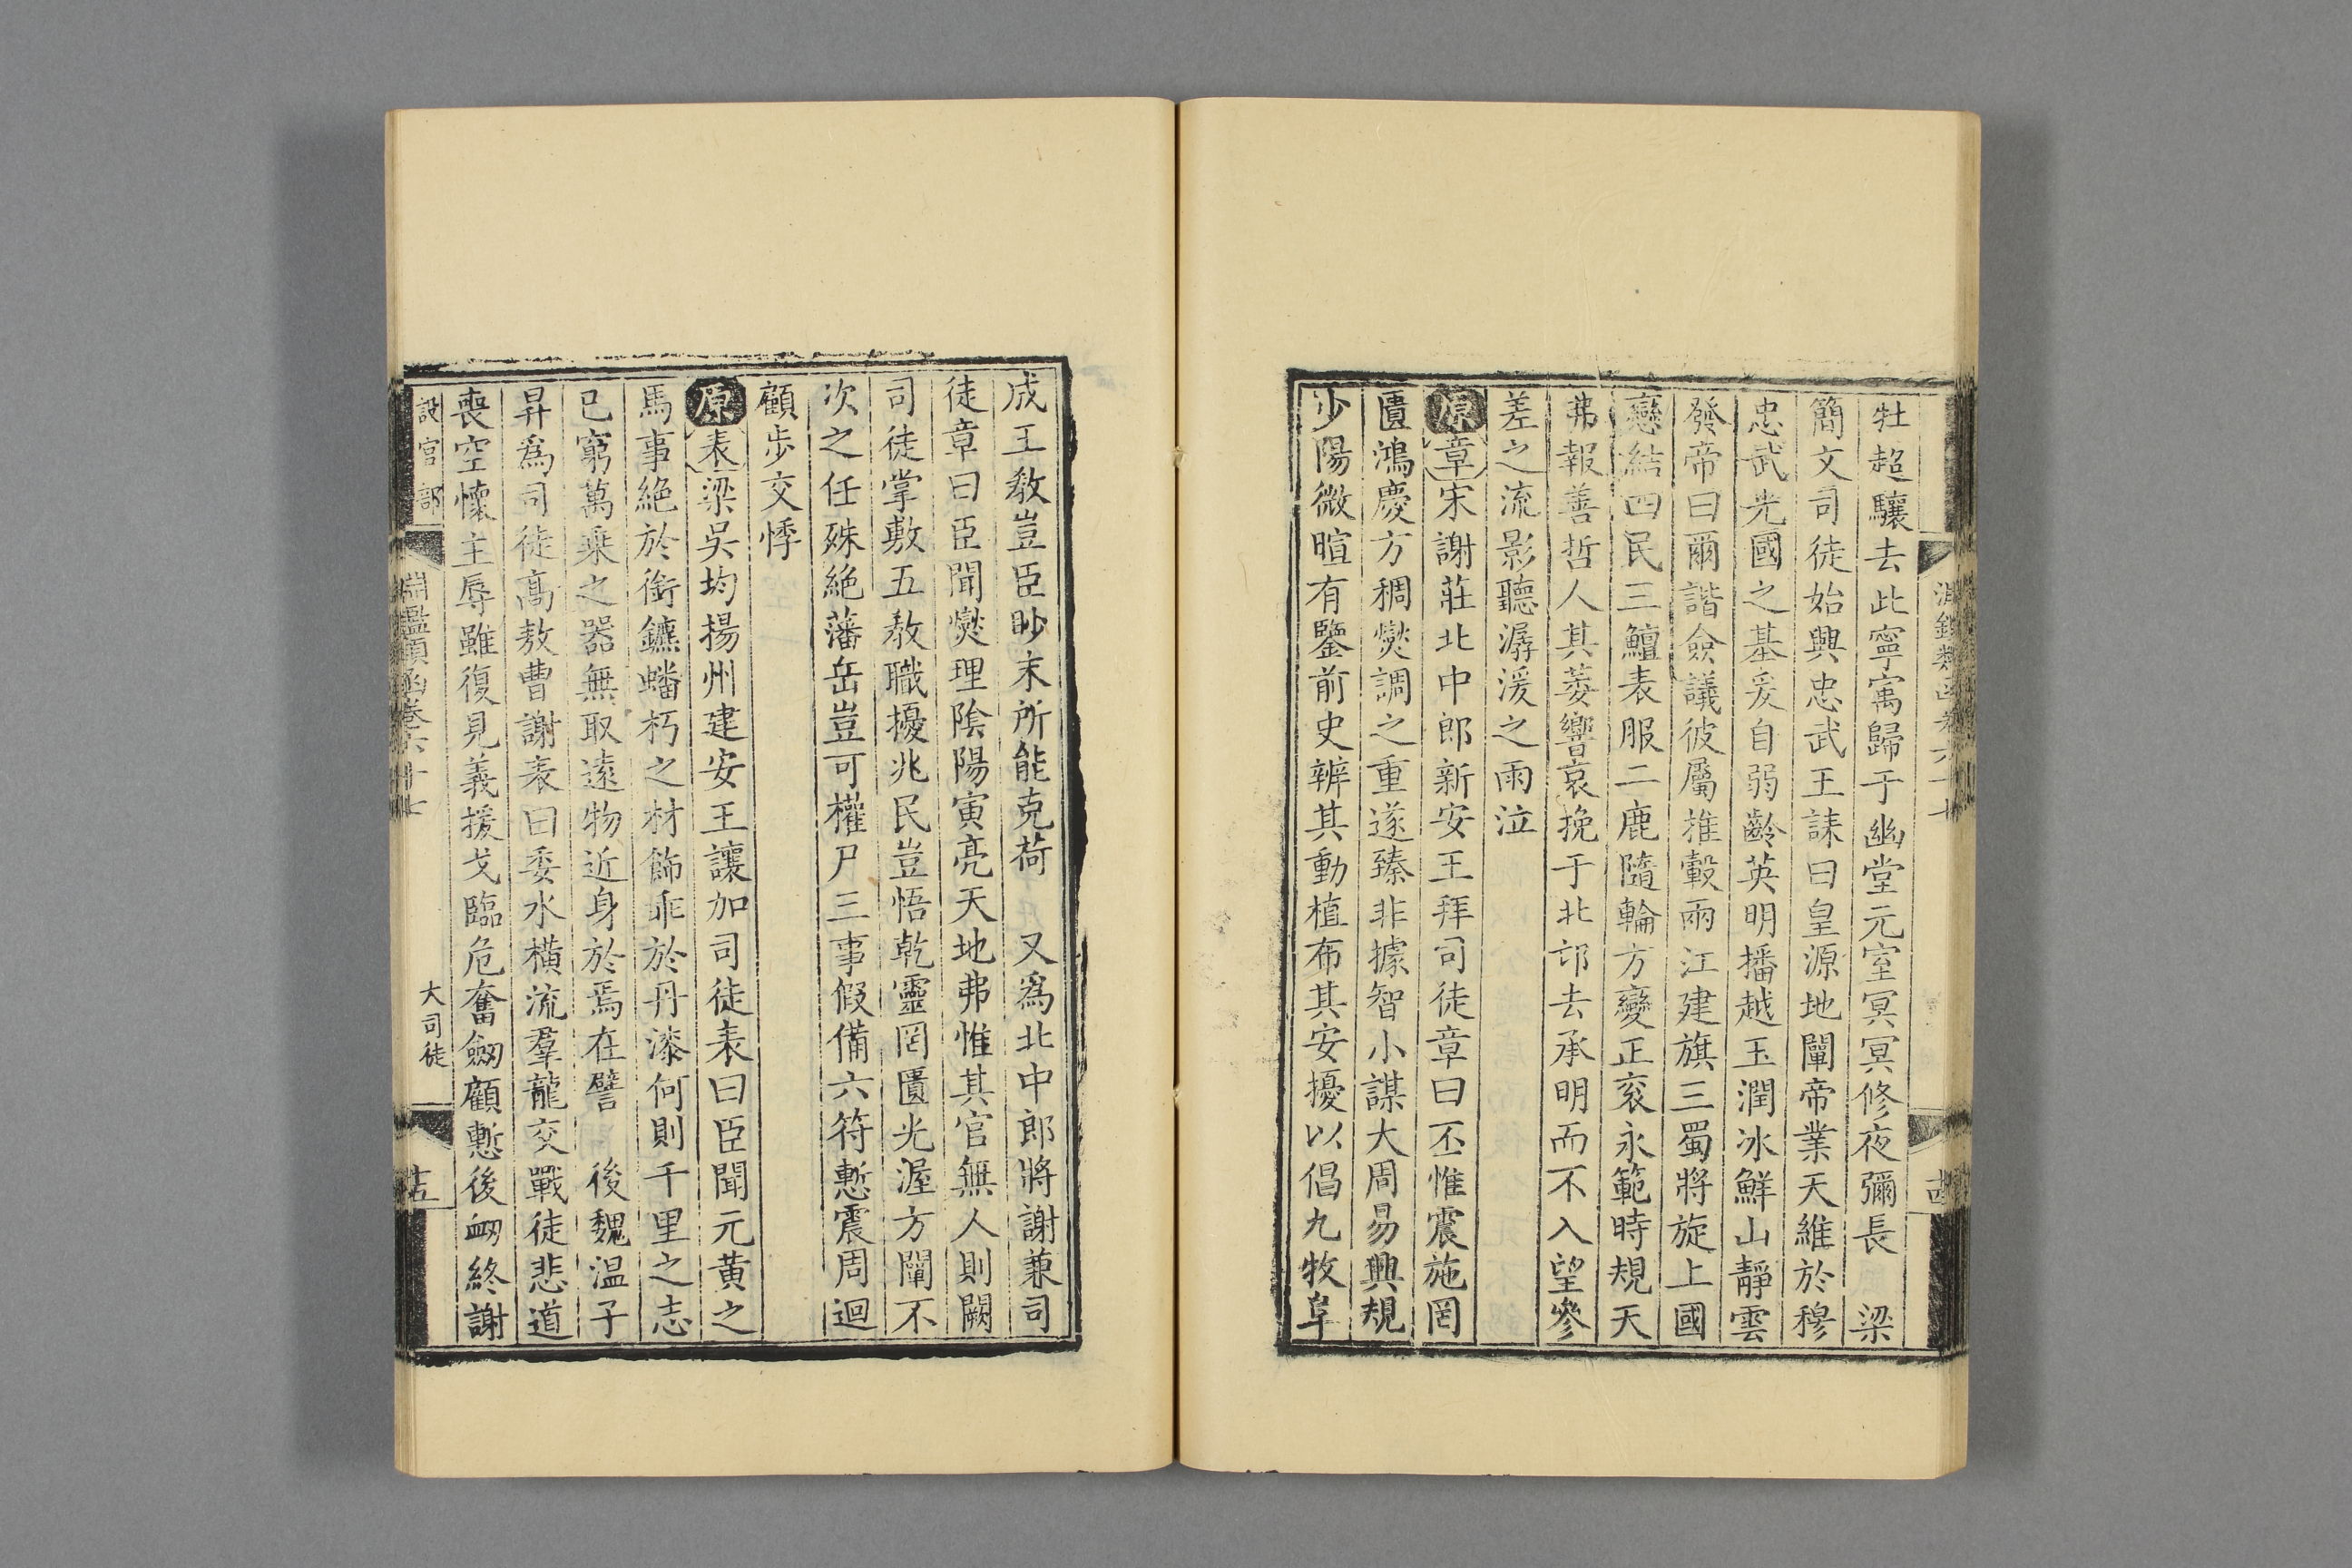 牡超驤去此寧寓歸于幽堂元室冥冥修夜彌長　梁
簡文司徒始興忠武王誄曰皇源地闡帝業天維於穆
忠武光國之基爰自弱齡英明播越玉潤冰鮮山靜雲
發帝曰爾諧僉議彼屬推轂兩江建旗三蜀將旋上國
戀結四民三鱣表服二鹿隨輪方變正袞永範時規天
弗報善哲人其萎響哀挽于北邙去承明而不入望參
差之流影聽潺湲之雨泣
原章宋謝莊北中郎新安王拜司徒章曰丕惟震施罔
匱鴻慶方稠爕調之重遂臻非據智小謀大周易興規
少陽微暄有鑒前史辨其動植布其安擾以倡九牧阜
成王教豈臣眇末所能克荷　又為北中郎將謝兼司
徒章曰臣聞爕理陰陽寅亮天地弗惟其官無人則闕
司徒掌敷五教職擾兆民豈悟乾靈罔匱光渥方闡不
次之任殊絕藩岳豈可權尸三事假備六符慙震周迴
顧步交悸
原表梁吳均揚州建安王讓加司徒表曰臣聞元黃之
馬事絕於銜鑣蟠朽之材飾乖於丹漆何則千里之志
已窮萬乘之器無取遠物近身於焉在譬　後魏温子
昇為司徒高敖曹謝表曰委水橫流羣龍交戰徒悲道
喪空懷主辱雖復見義援戈臨危奮劒顧慙後衂終謝
設官部　淵鑑類函卷六十七　大司徒　十五